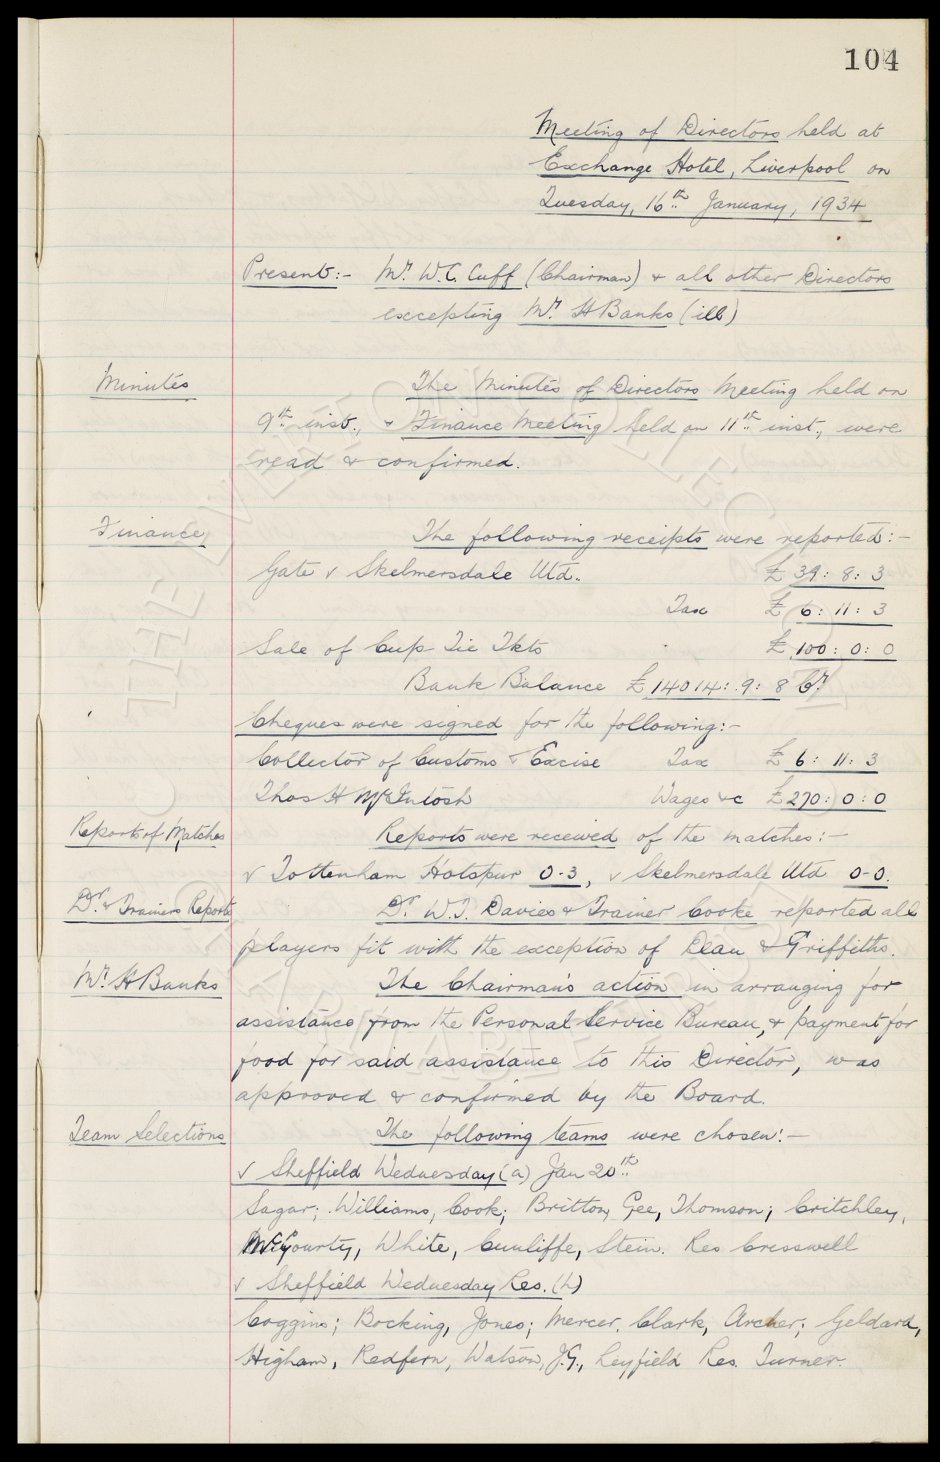 104
Meeting of Directors held at
Exchange Hotel, Liverpool on
Tuesday, 16th January, 1934
Present:- Mr. W.C. Cuff (Chairman) & all other Directors
excepting Mr. H Banks (ill)
Minutes The Minutes of Directors Meeting held on
9th inst., & Finance Meeting held on 11th inst., were
read & confirmed.
Finance The following receipts were reported:-
Gate v Skelmersdale Utd. £ 39: 8: 3
Tax £ 6: 11: 3
Sale of Cup-Tie Tkts £ 100: 0: 0
Bank Balance £14014: 9: 8 Cr.
Cheques were signed for the following:-
Collector of Customs & Excise Tax £ 6: 11: 3
Thos H McIntosh Wages &c £270: 0: 0
Reports of Matches Reports were received of the matches:-
v Tottenham Hotspur 0-3, v Skelmersdale Utd 0-0.
Dr. & Trainers Reports Dr. W.J. Davies & Trainer Cooke reported all
players fit with the exception of Dean & Griffiths.
Mr. H Banks The Chairman's action in arranging for
assistance from the Personal Service Bureau, & payment for
food for said assistance to this Director, was
approved & confirmed by the Board.
Team Selections The following teams were chosen:-
v Sheffield Wednesday (a) Jan 20th
Sagar; Williams, Cook; Britton, Gee, Thomson; Critchley,
McGourty, White, Cunliffe, Stein. Res Cresswell
v Sheffield Wednesday Res. (h)
Coggins; Bocking, Jones; Mercer, Clark, Archer; Geldard,
Higham, Redfern, Watson, J.G., Leyfield Res. Turner.